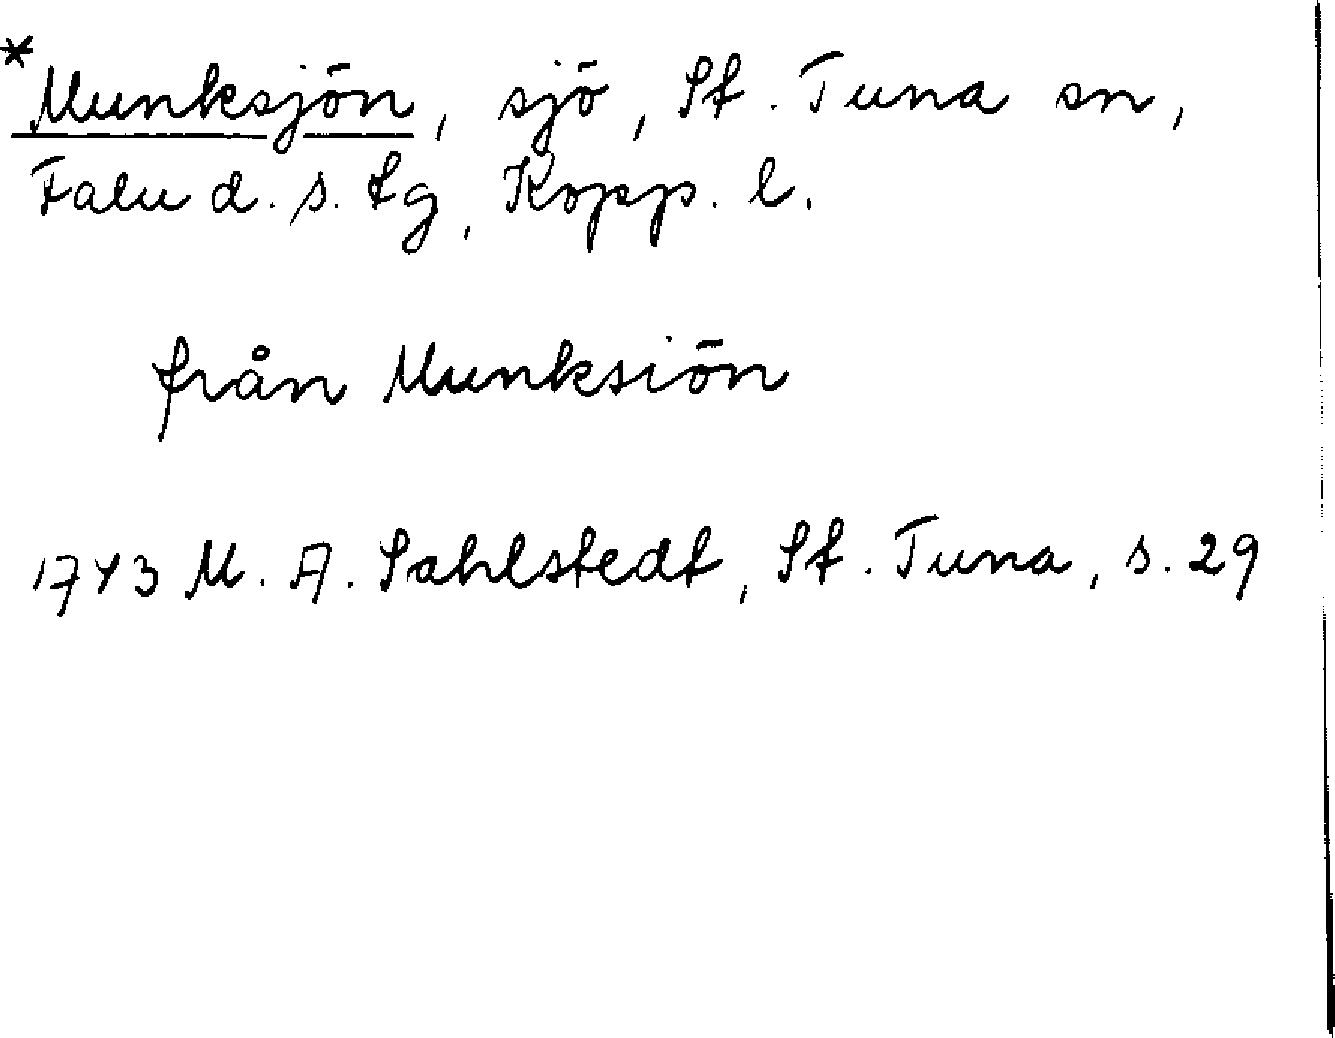 *Munksjön, sjö, St. Tuna sn,
Falu d. s. tg, Kopp. l.
från Munksiön
1743 M. A. Sahlstedt, St. Tuna, s. 29